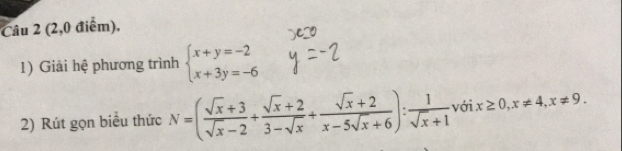 Câu 2 (2,0 điểm).
1) Giải hệ phương trình {x + y = −2
x + 3y = −6
x=0
y = −2
2) Rút gọn biểu thức N = ( (√x + 3)/(√x − 2) + (√x + 2)/(3 − √x) + (√x + 2)/(x − 5√x + 6) ) : 1/(√x + 1) với x ≥ 0, x ≠ 4, x ≠ 9.